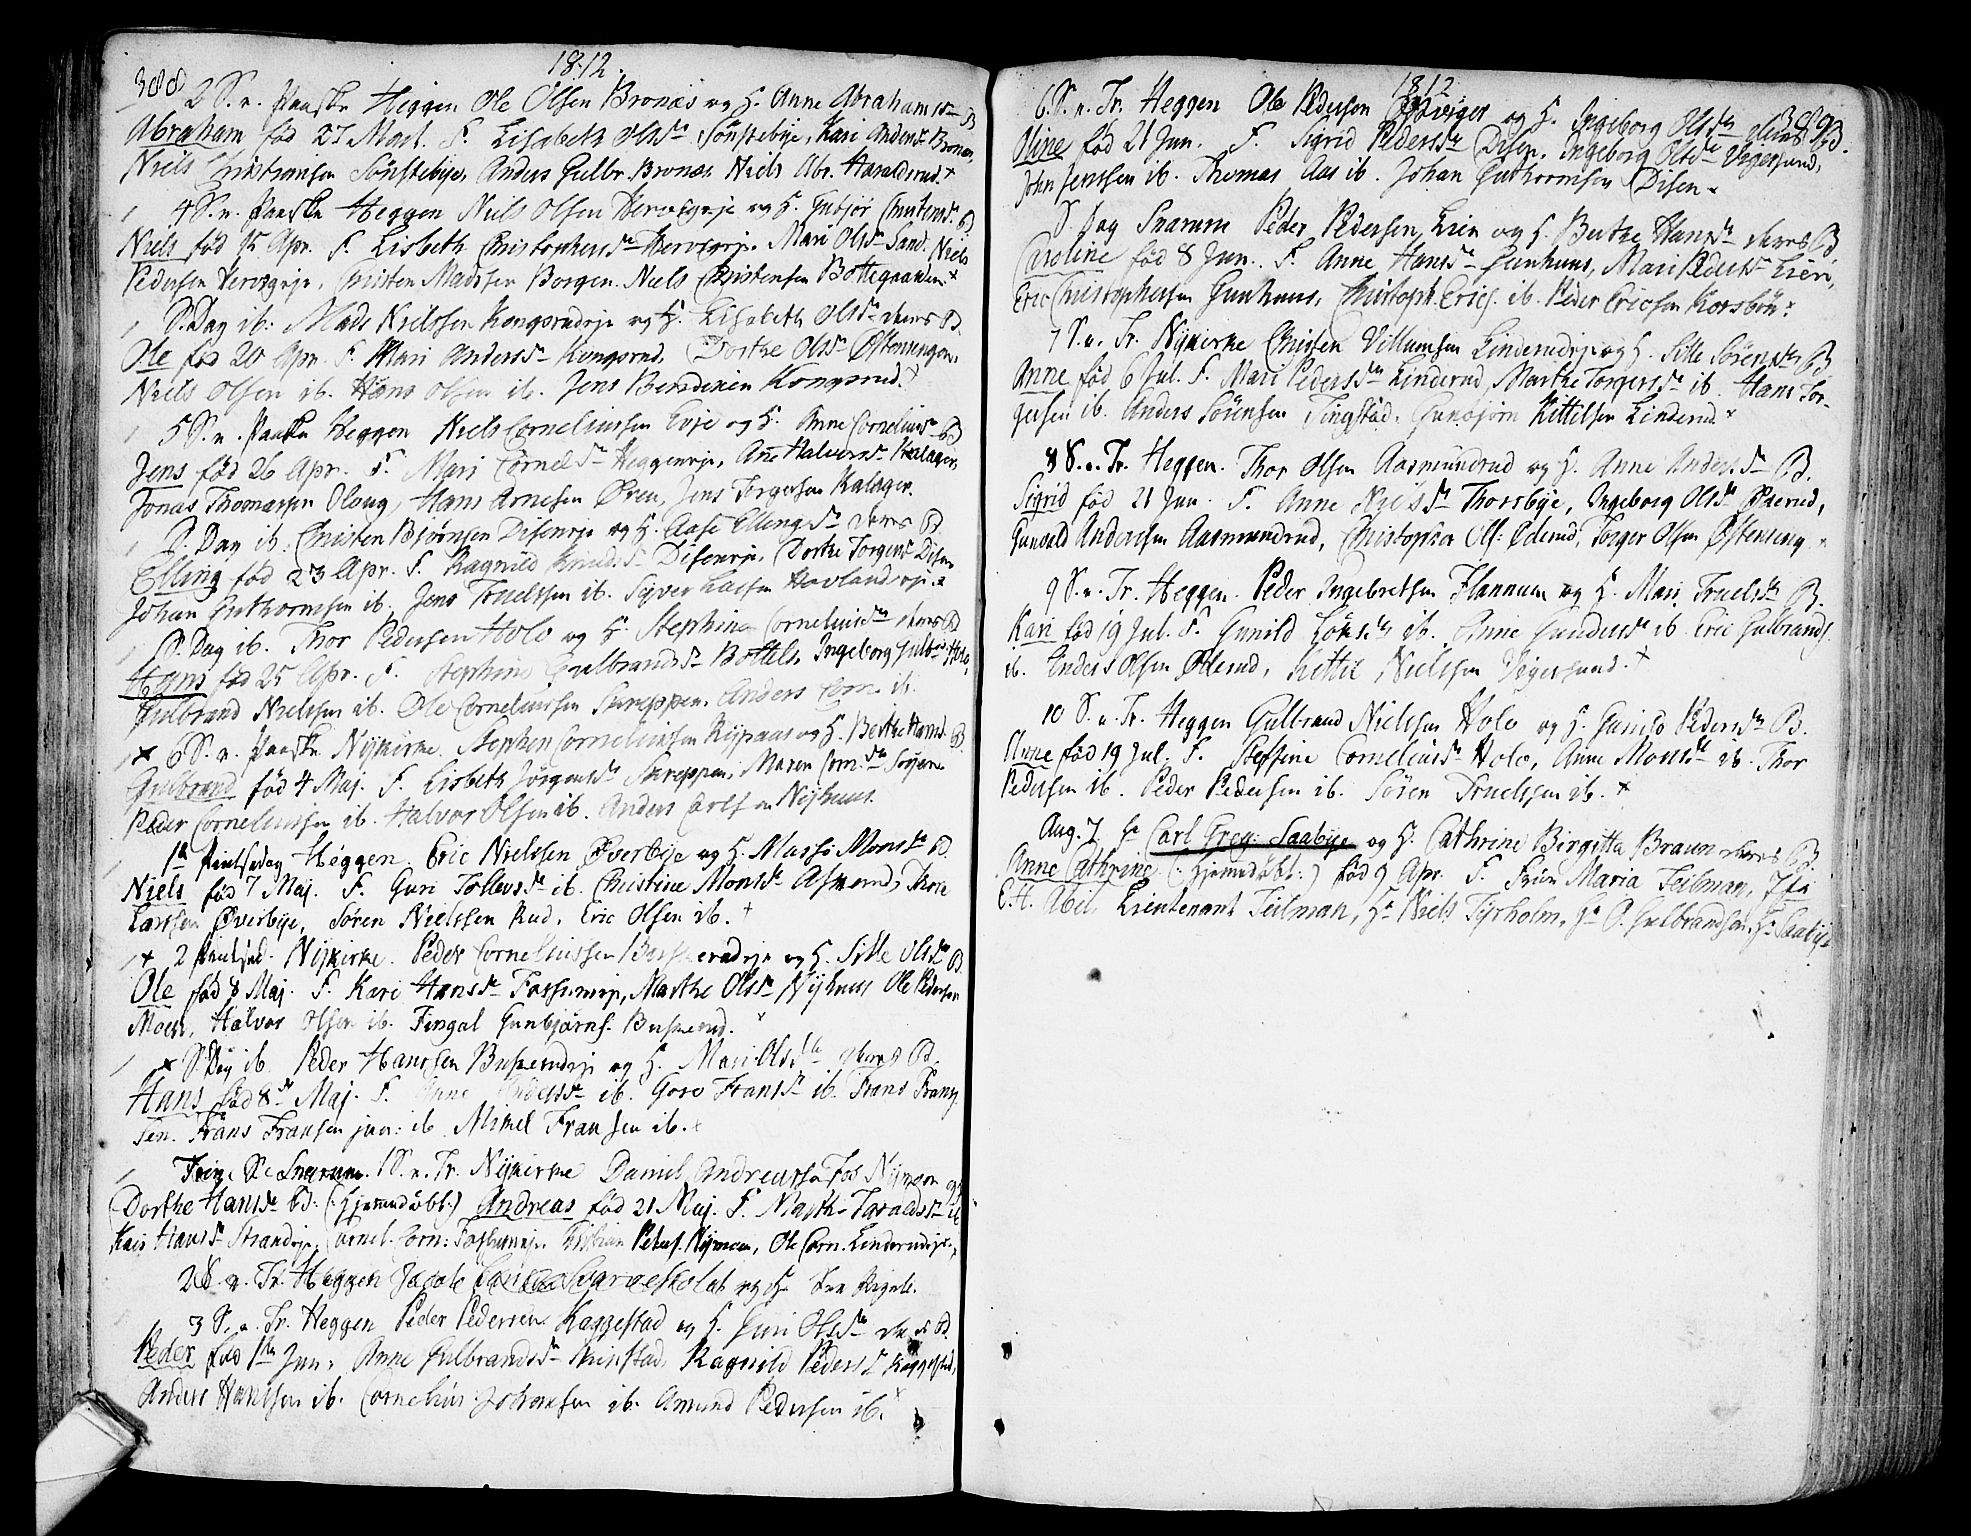 388
1812.
2 S. e. Paaske Heggen Ole Olsen Bronæs og H. Anne Abrahamsd. B
Abraham fød 27 Mart. F. Lisabeth Olsd. Sönstebye, Kari Andersd. Bronæs,
Niels Christiansen Sönstebye, Anders Gulbr. Bronæs Niels Abr. Haraldsrud. x
4 S. e. Paaske Heggen Niels Olsen Hervigeje og H. Gubjör Christensd. B.
Niels fød 15 Apr. F. Lisbeth Christophersd. Hervigeje. Mari Olsd. Sand. Niels
Pedersen Hervigeje, Christen Madssen Borgen. Niels Christensen Bottegaarden. x
S. Dag ib: Mads Nielssen Kongsrudeje og H. Lisabeth Olsd. deres B.
Ole fød 20 Apr. F. Mari Andersd. Kongsrud, Dorthe Olsd. Östensengen.
Niels Olsen ib. Hans Olsen ib. Jens Berdinen Kongsrud. x
5 S. e. Paaske Heggen Niels Corneliussen Evje og H. Anne Corneliusd. B
Jens fød 26 Apr. F. Mari Cornelsd. Heggeneje, Ane Halvorsd. Kalager,
Jonas Thomassen Oloug, Hans Arnesen Øren, Jens Torgersen Kalager.
S. Dag ib: Christen Bjørnsen Diseneje og H. Aase Ellingsd. deres B.
Elling fød 23 Apr. F. Ragnild Knudsd. Diseneje. Dorthe Torgersd. Disen
Johan Guthormsen ib, Jens Truelssen ib. Syver Larsen Hovlandseje. x
S. Dag ib. Thor Pedersen Holo og H. Stephine Corneliusd. deres B
Hans fød 25 Apr. F. Stephine Gulbrandsd. Bottels, Ingeborg Gulbrd. Holo,
Gulbrand Nielssen ib. Ole Corneliussen Skreppen. Anders Corn. ib.
x 6 S. e. Paaske Nykirke. Stephen Corneliusen Rypaas og H. Berthe Hansd. B.
Gulbrand fød 4 Maj. F. Lisbeth Jörgensd. Skreppen, Maren Corn.sd.
Peder Corneliussen ib. Halvor Olsen ib. Anders Carlsen Nyhuus.
1te Pintsedag Heggen. Eric Nielssen Øverbye og H. Massi Monsd. B
Niels fød 7 Maj. F. Guri Tollevsd. ib. Christine Monsd. Asmerud, Thore
Larssen Øverbye, Sören Nielssen Rud, Eric Olsen ib. †
x 2 Pintsed. Nykirke. Peder Corneliussen Buskerudeje og H. Sille Olsd. B.
Ole fød 8 Maj. F. Kari Hansd. Fossumeje, Marthe Olsd. Nyhuus Ole Pedersen
Moen, Halvor Olsen ib. Fingal Gunbjörns. Buskerud. x
x S. Dag ib. Peder Hanssen Buskerudeje og H. Mari Olsd. deres B.
Hans fød 8de Maj. F. Anne Andersd. ib. Goro Fransd. ib. Frans Frans-
sen. Frans Fransen jun: ib. Mikel Fransen ib. x
Trin. S. Snarum. 1 S. e. Tr. Nykirke Daniel Andreassen Fos Nymoen og
Dorthe Hansd. B: (: Hjemmedöbt:) Andreas fød 21 Maj. F. Marthe Taraldsd. ib
Kari Hansd. Strandeje, Cornel. Corn: Fossumeje. Peders. Nymoen, Ole Corn. Linderudeje. x
2 S. e. Tr. Heggen Jacob og H.
3 S. e. Tr. Heggen Peder Pedersen Kaggestad og H. Guri Olsd. deres B.
Peder fød 1te Jun. Anne Gulbrandsd. Ragnild Pedersd. Kaggestad,
Anders Hanssen ib. Cornelius Johansen ib. Amund Pedersen ib. x
1812
389
6 S. e. Tr. Heggen Ole Pedersen og H. Ingeborg Olsd. deres B.
Oline fød 21 Jun. F. Sigrid Pedersd. Disen. Ingeborg Olsd. Vigersund,
John Jenssen ib. Thomas Aas ib. Johan Guthormsen Disen. x
S. Dag Snarum Peder Pedersen Lien og H. Berthe Hansd. deres B
Caroline fød 8 Jun. F. Anne Hansd. Gunhuus, Mari Pedersd. Lien,
Eric Christophersen Gunhuus, Christoph. Erics. ib. Peder Ericsen Korsbön x
7 S. e. Tr. Nykirke Christen Villumsen Linderudeje og H. Sille Sörensd. B
Anne fød 6 Jul. F. Mari Pedersd. Linderud, Marthe Torgersd. ib. Hans Tor-
gersen ib. Anders Sörensen Tingstad. Gunbjörn Kittilsen Linderud x
8 S. e. Tr. Heggen. Thor Olsen Aasmundrud og H. Anne Andersd. B.
Sigrid fød 21 Jun. F. Anne Nielsd. Thorsbye, Ingeborg Olsd. Øderud,
Gunvald Andersen Aasmundrud, Christopher Ols: Øderud, Torger Olsen Østenseng. x
9 S. e. Tr. Heggen. Peder Ingebretsen Flannum og H. Mari Truelsd. B.
Kari fød 19 Jul. F. Gunild ib. Anne Gundersd. ib. Eric Gulbrands.
ib. Anders Olsen Øderud, Kittil Nielssen Vigersund. †
10 S. e. Tr. Heggen Gulbrand Nielssen Holo og H. Gunild Pedersd. B.
Anne fød 19 Jul. F. Steffine Corneliusd. Holo, Anne Monsd. ib. Thor
Pedersen ib. Peder Pedersen ib. Sören Truelssen ib. x
Aug. 7 Hr Carl Greg: Saabye og H. Cathrine Birgitta Braun deres B.
Anne Cathrine (: Hjemmedöbt:) fød 9 Apr. F. Frue Maria Teilman, Jfr
E. H. Abel, Lieutenant Teilman, Hr Niels Tyrholm, Hr O. Gulbrandsen, Hr Saabye